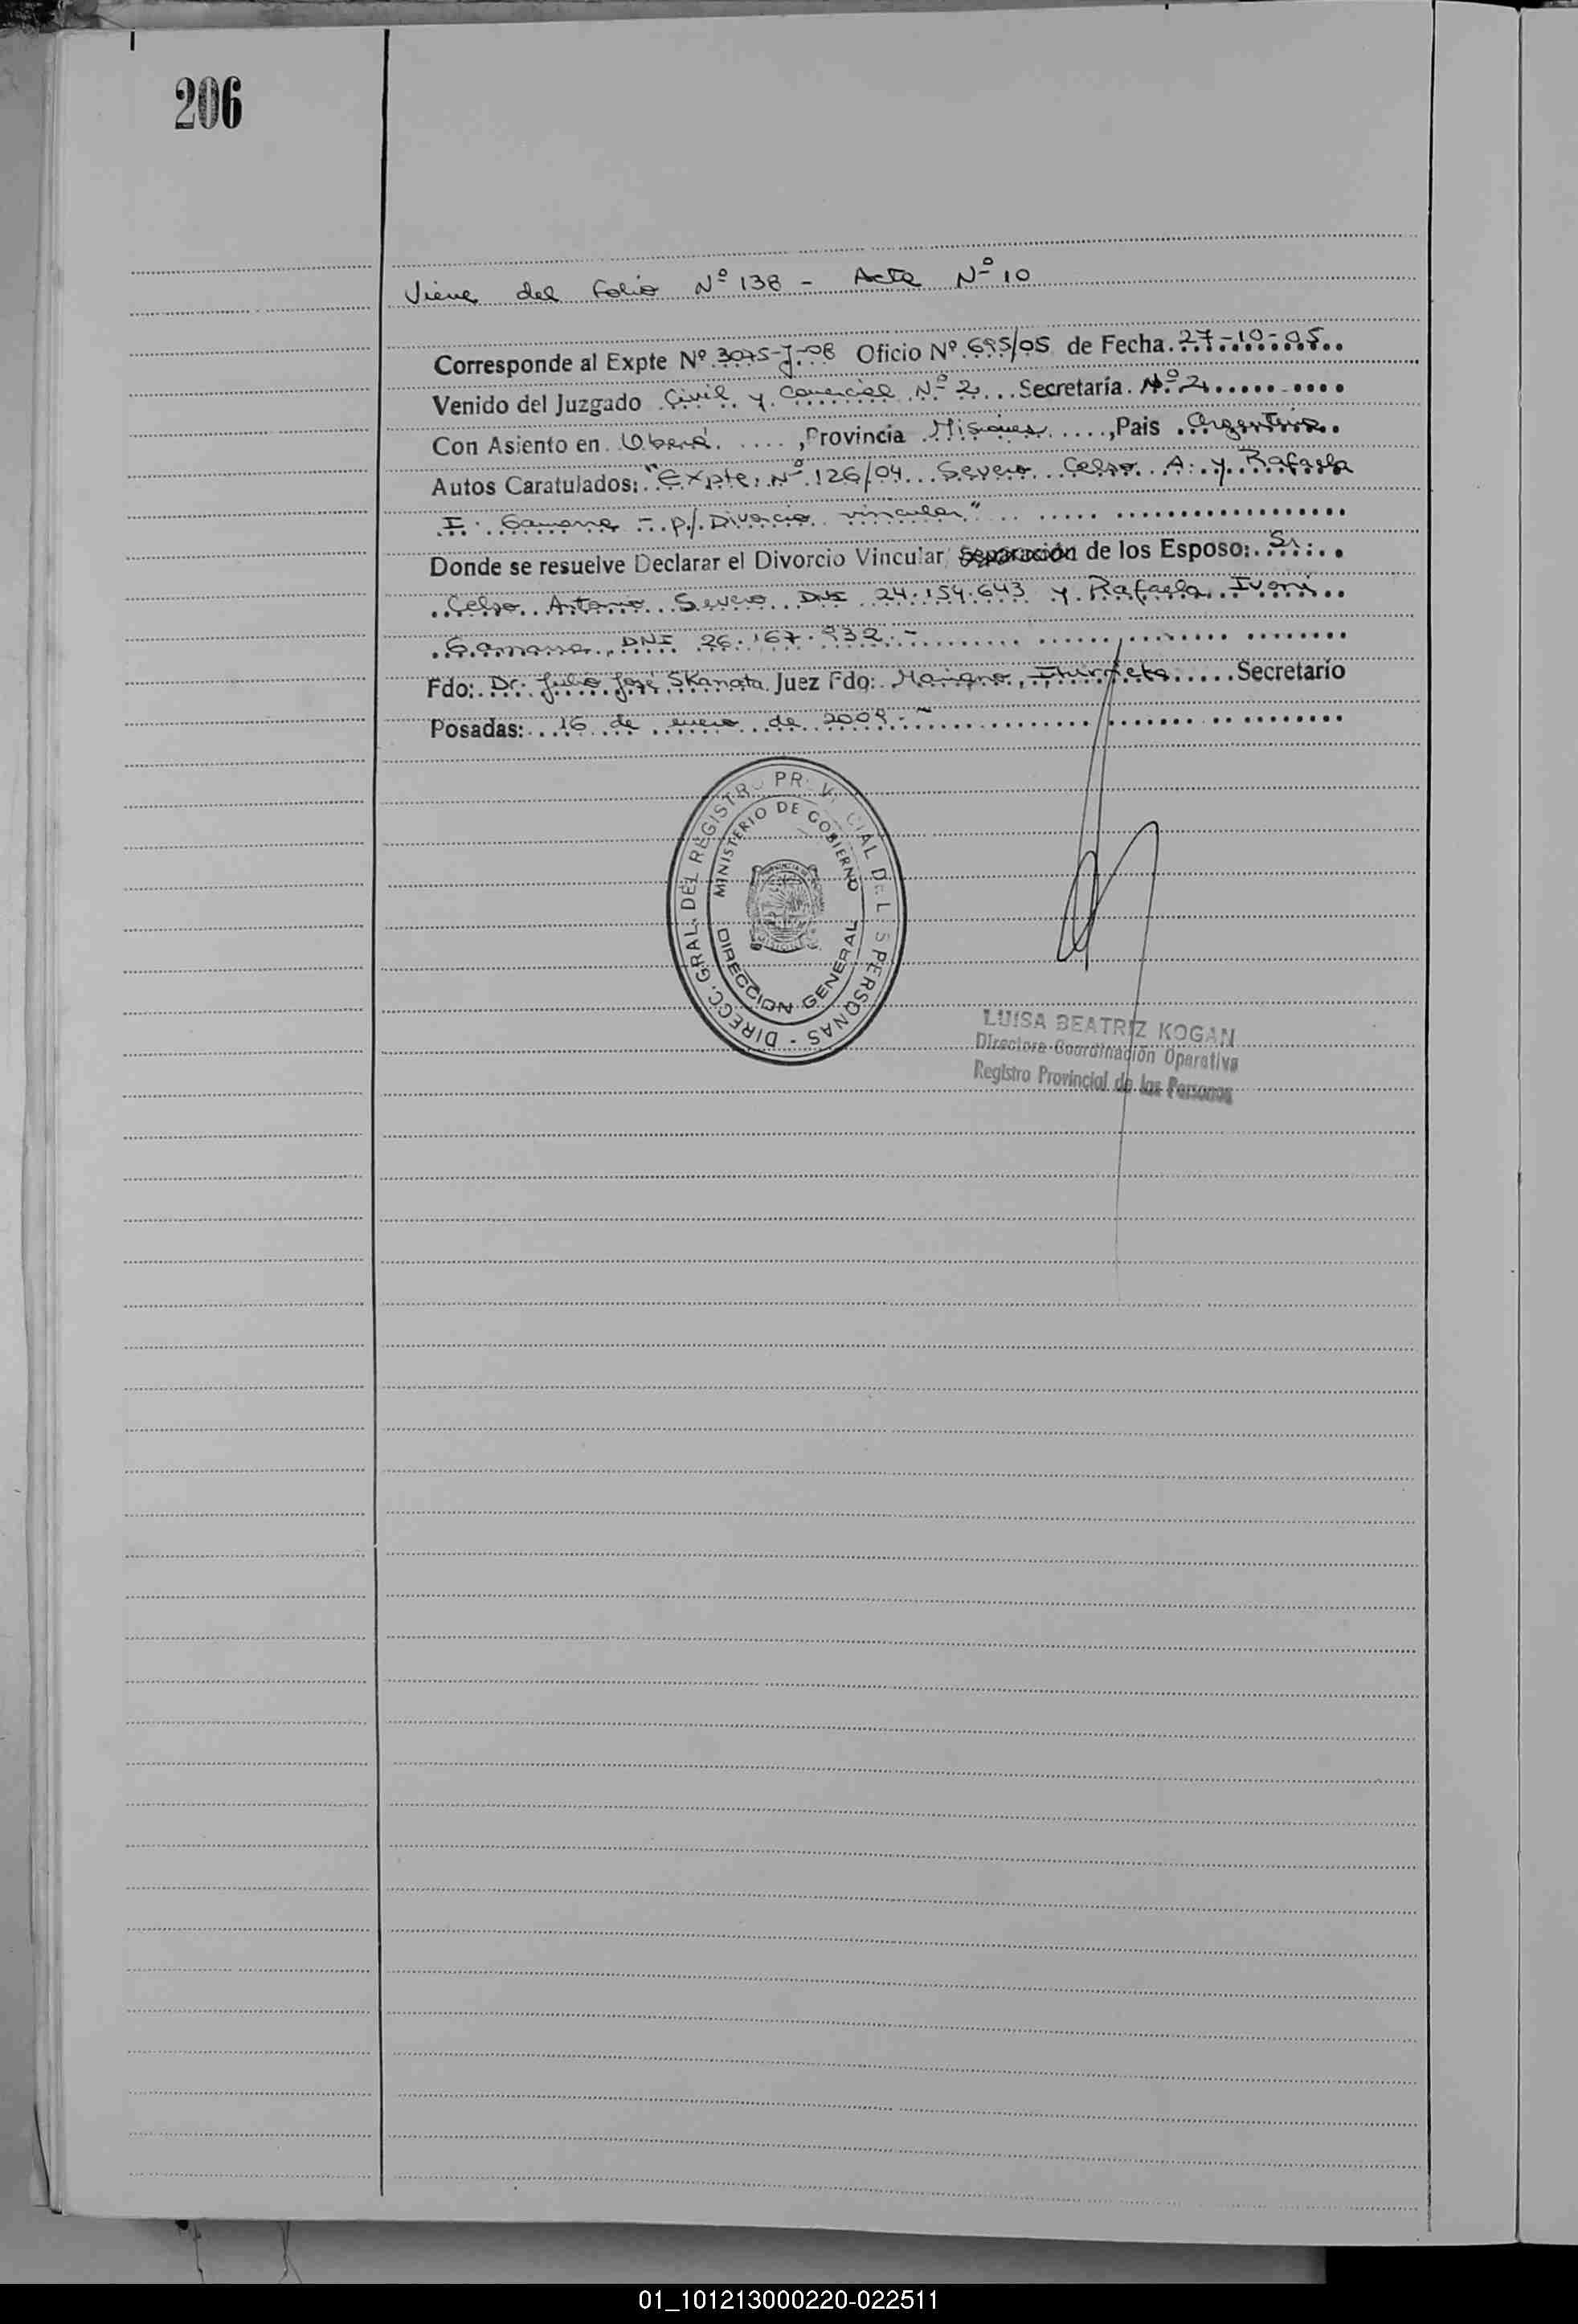 206
Viene del Folio Nº 138 - Acta Nº 10
Corresponde al Expte Nº 3075-J-08 Oficio Nº 695/05 de Fecha 27-10-05
Venido del Juzgado Civil y Comercial Nº 2 Secretaría Nº 2
Con Asiento en Oberá, Provincia Misiones, Pais Argentina
Autos Caratulados: "Expte. Nº 126/04 Severo Celso A. y Rafaela
I. Gamarra - p/. Divorcio vincular"
Donde se resuelve Declarar el Divorcio Vincular Separación de los Esposo: Sr.
Celso Antonio Severo DNI 24.154.643 y Rafaela Ivoni
Gamarra, DNI 26.167.932.-
Fdo: Dr. Julio José Skanata Juez Fdo: Mariano Secretario
Posadas: 16 de enero de 2009.-
DIRECC. GRAL. DEL REGISTRO PROVINCIAL DE LAS PERSONAS -
MINISTERIO DE GOBIERNO
DIRECCION GENERAL
LUISA BEATRIZ KOGAN
Directora Coordinación Operativa
Registro Provincial de las Personas
01_101213000220-022511